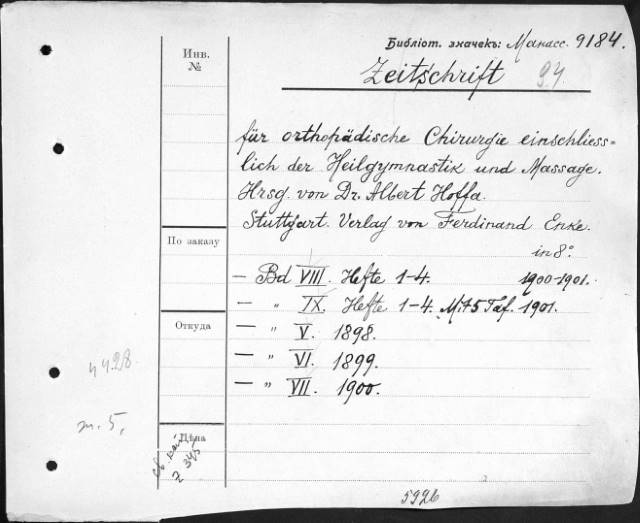 Библіот. значекъ: Манасс. 9184.
Инв. №
Zeitschrift
für orthopädische Chirurgie einschliess=
lich der Heilgymnastik und Massage.
Hrsg. von Dr. Albert Hoffa.
Stuttgart. Verlag von Ferdinand Enke.
in 8°.
По заказу
— Bd VIII. Hefte 1-4. 1900-1901.
— " IX. Hefte 1-4. Mit 5 Taf. 1901.
Откуда
— " V. 1898.
— " VI. 1899.
— " VII. 1900.
т. 5,
Цѣна
5926